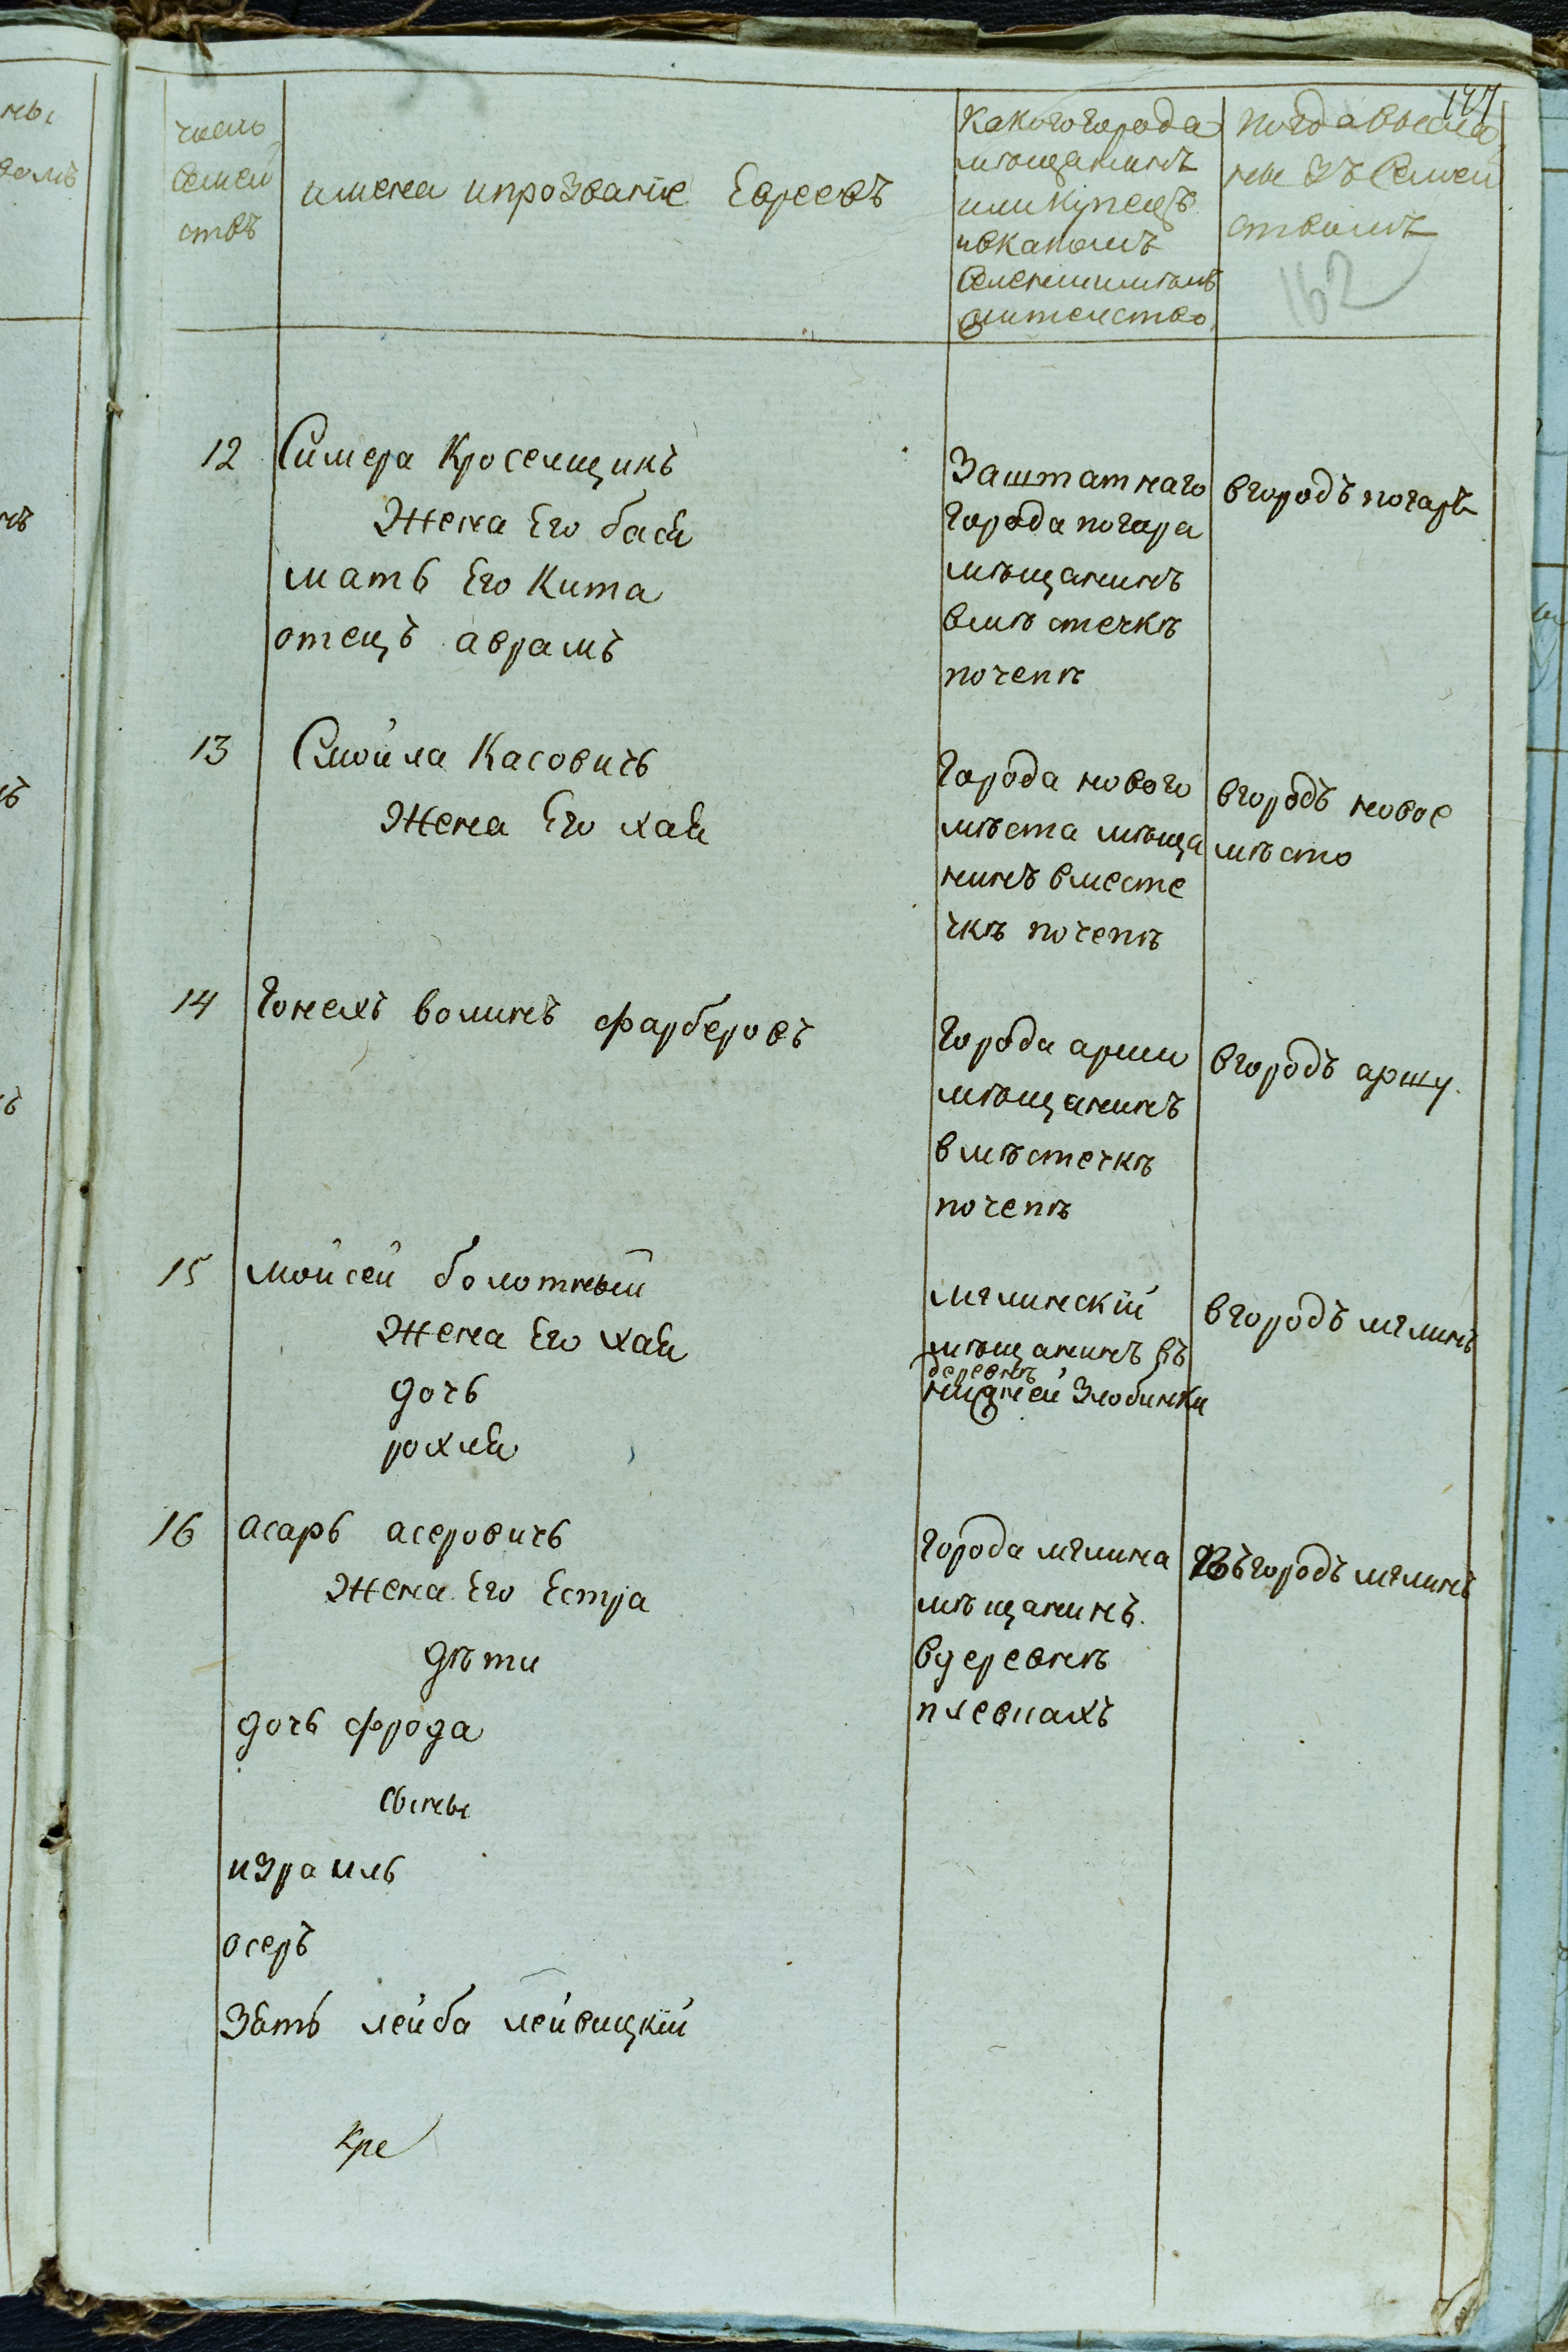 147
число
семей
ствъ
имена ипрозваніе Евреевъ
какогогорода
мѣщанинъ
иликупецъ
ивкакомъ
селенииимѣлъ
жителство
кудавысла
ны зъ семей
ствомъ
162
12 Симера Кроселщикъ
жена Его бася
мать Его Кита
отецъ аврамъ
заштатнаго
города погара
мѣщанинъ
вмѣстечкѣ
почепѣ
вгородъ погаръ
13 Смойла Касовичь
жена Его хая
города нового
мѣста мѣща
нинъ вместе
чкѣ почепѣ
вгородъ новое
мѣсто
14 Гонехъ волинъ фарберовъ
города арши
мѣщанинъ
вмѣстечкѣ
почепѣ
вгородъ аршу.
15 мойсей болотный
жена Его хая
дочь
рохля
мглинскій
мѣщанинъ въ
деревнѣ
нижней злобинки
вгородъ мглинъ
16 асаръ асеровичь
жена Его Естра
дѣти
дочь фрода
сыны
израиль
осеръ
зять лейба лейвицкій
города мглина
мѣщанинъ.
вдеревнѣ
плевкахъ
въгородъ мглинъ
кре